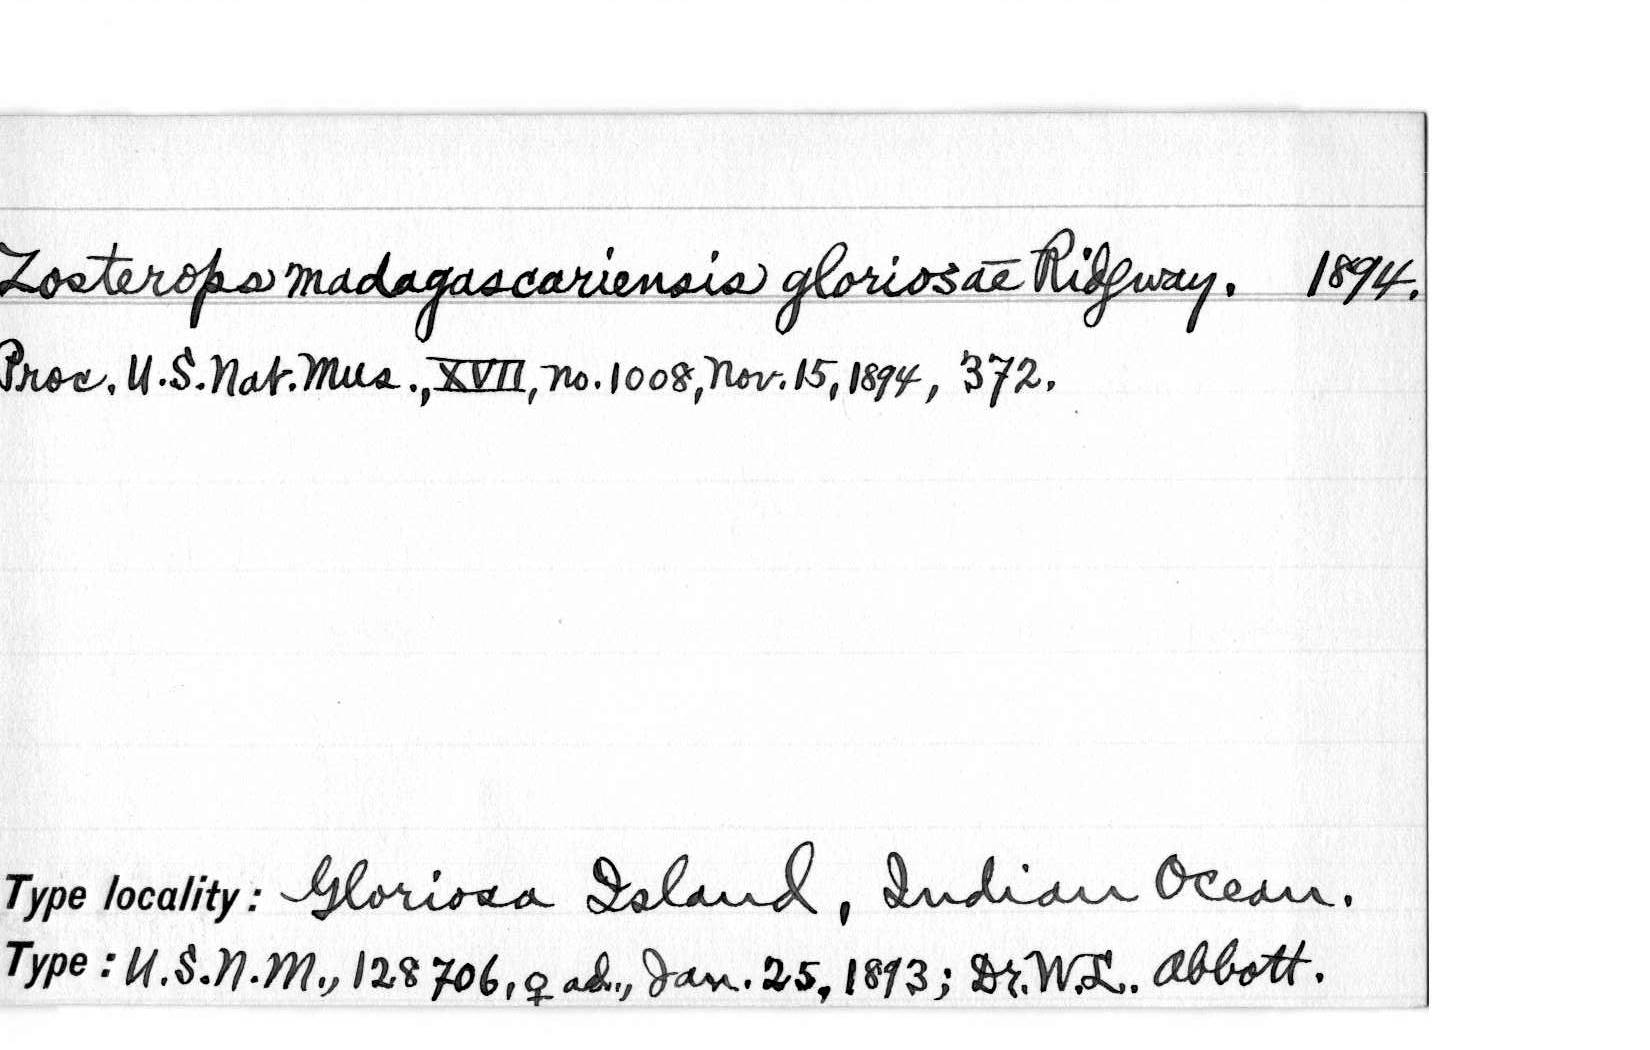 Zosterops madagascariensis gloriosae Ridgway. 1894.
Proc. U.S. Nat. Mus., XVII, no. 1008, Nov. 15, 1894, 372.
Type locality: Gloriosa Island, Indian Ocean.
Type: U.S.N.M., 128706, ♀ ad., Jan. 25, 1893; Dr. W.L. Abbott.